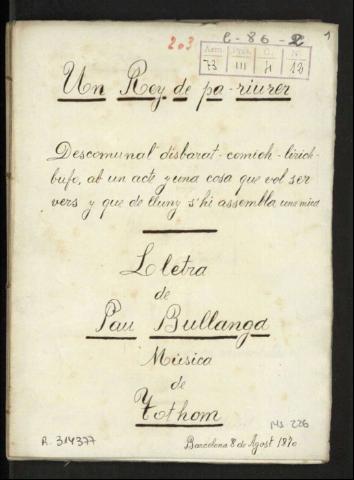 203 C-86-2 1
Arm. Pres. C. Nº
73 III 4 13
Un Rey de pa-riurer
Descomunal disbarat-comich-lirich-
bufo, ab un acte y una cosa que vol ser
vers y que de lluny s'hi assembla una mica
Lletra
de
Pau Bullanga
Música
de
Tothom
MS 226
R. 314377
Barcelona 8 de Agost 1870